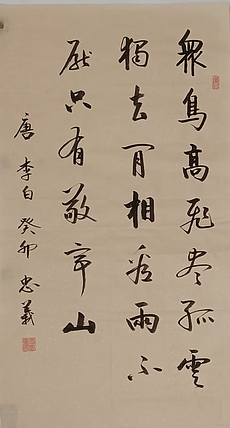 衆鳥高飛盡孤雲
獨去閒相看兩不
厭只有敬亭山
唐 李白 癸卯 忠義